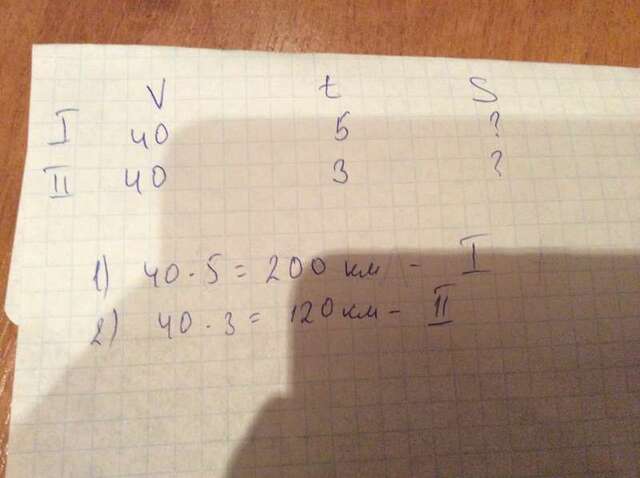 V t S
I 40 5 ?
II 40 3 ?
1) 40 · 5 = 200 км - I
2) 40 · 3 = 120 км - II